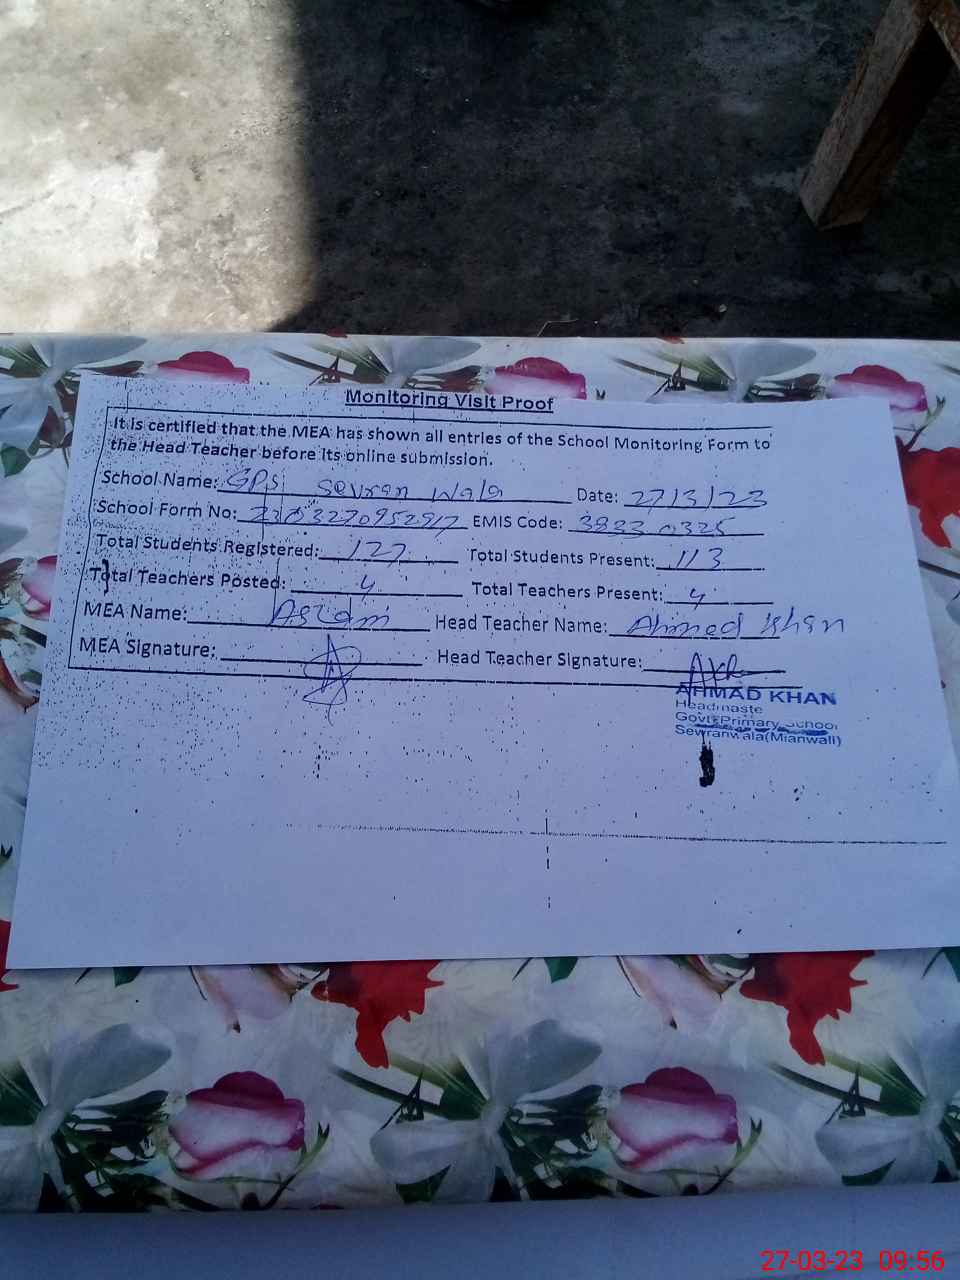 Monitoring Visit Proof
It is certified that the MEA has shown all entries of the School Monitoring Form to
the Head Teacher before its online submission.
School Name: GPS Sevran Wala Date: 27/3/23
School Form No: 2303270952917 EMIS Code: 38230325
Total Students Registered: 127 Total Students Present: 113
Total Teachers Posted: 4 Total Teachers Present: 4
MEA Name: Aslam Head Teacher Name: Ahmed Khan
MEA Signature: Head Teacher Signature:
AHMAD KHAN
Headmaste
Govt: Primary School
Sewranwala(Mianwali)
27-03-23 09:56